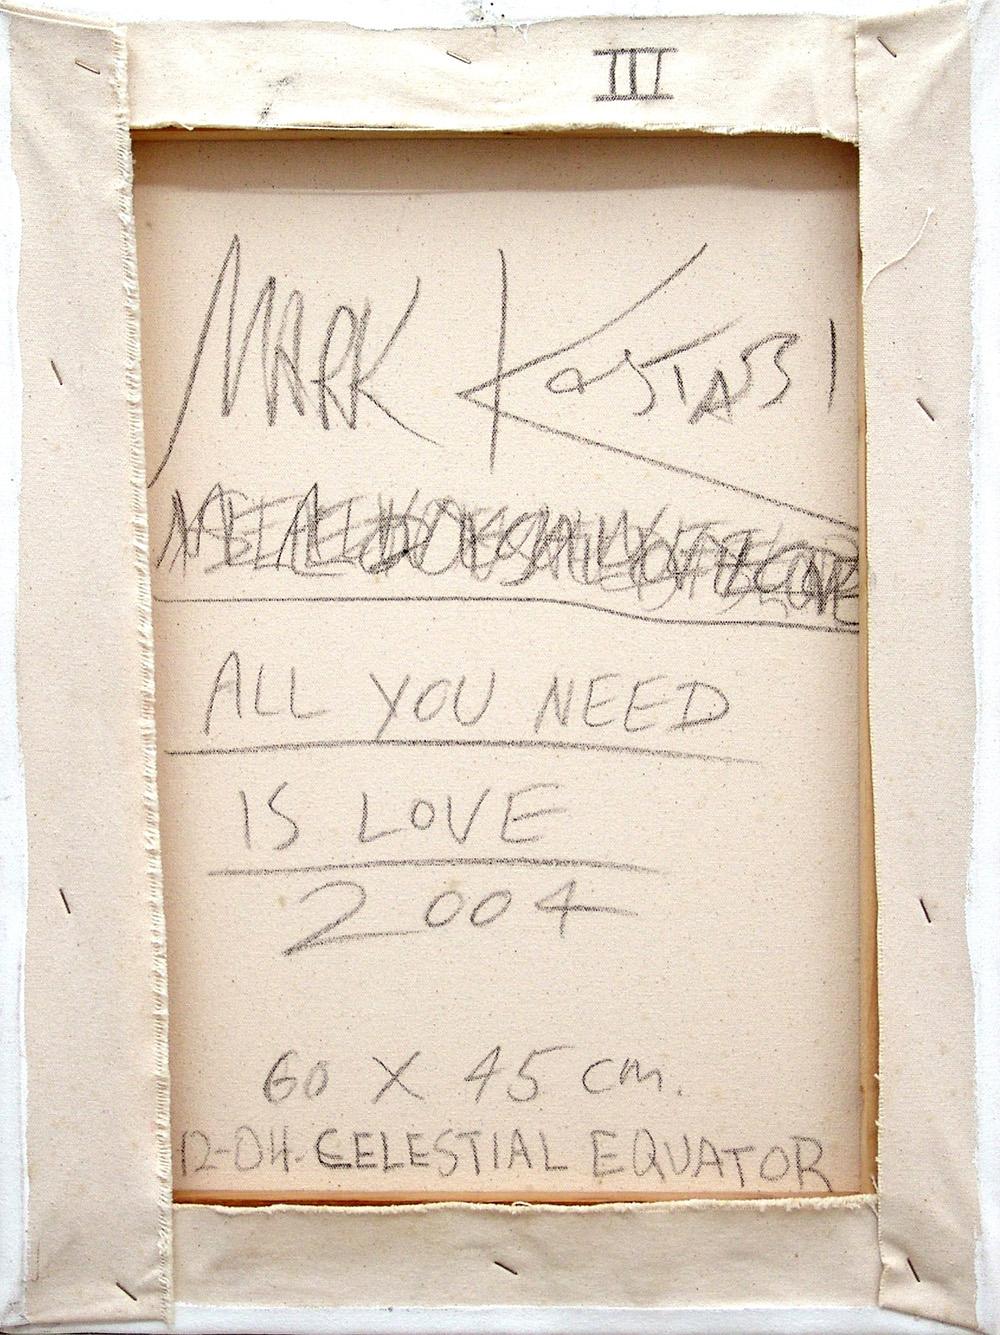 III
MARK KOSTABI
ALL YOU NEED
IS LOVE
2004
60 X 45 cm.
12-04. CELESTIAL EQUATOR